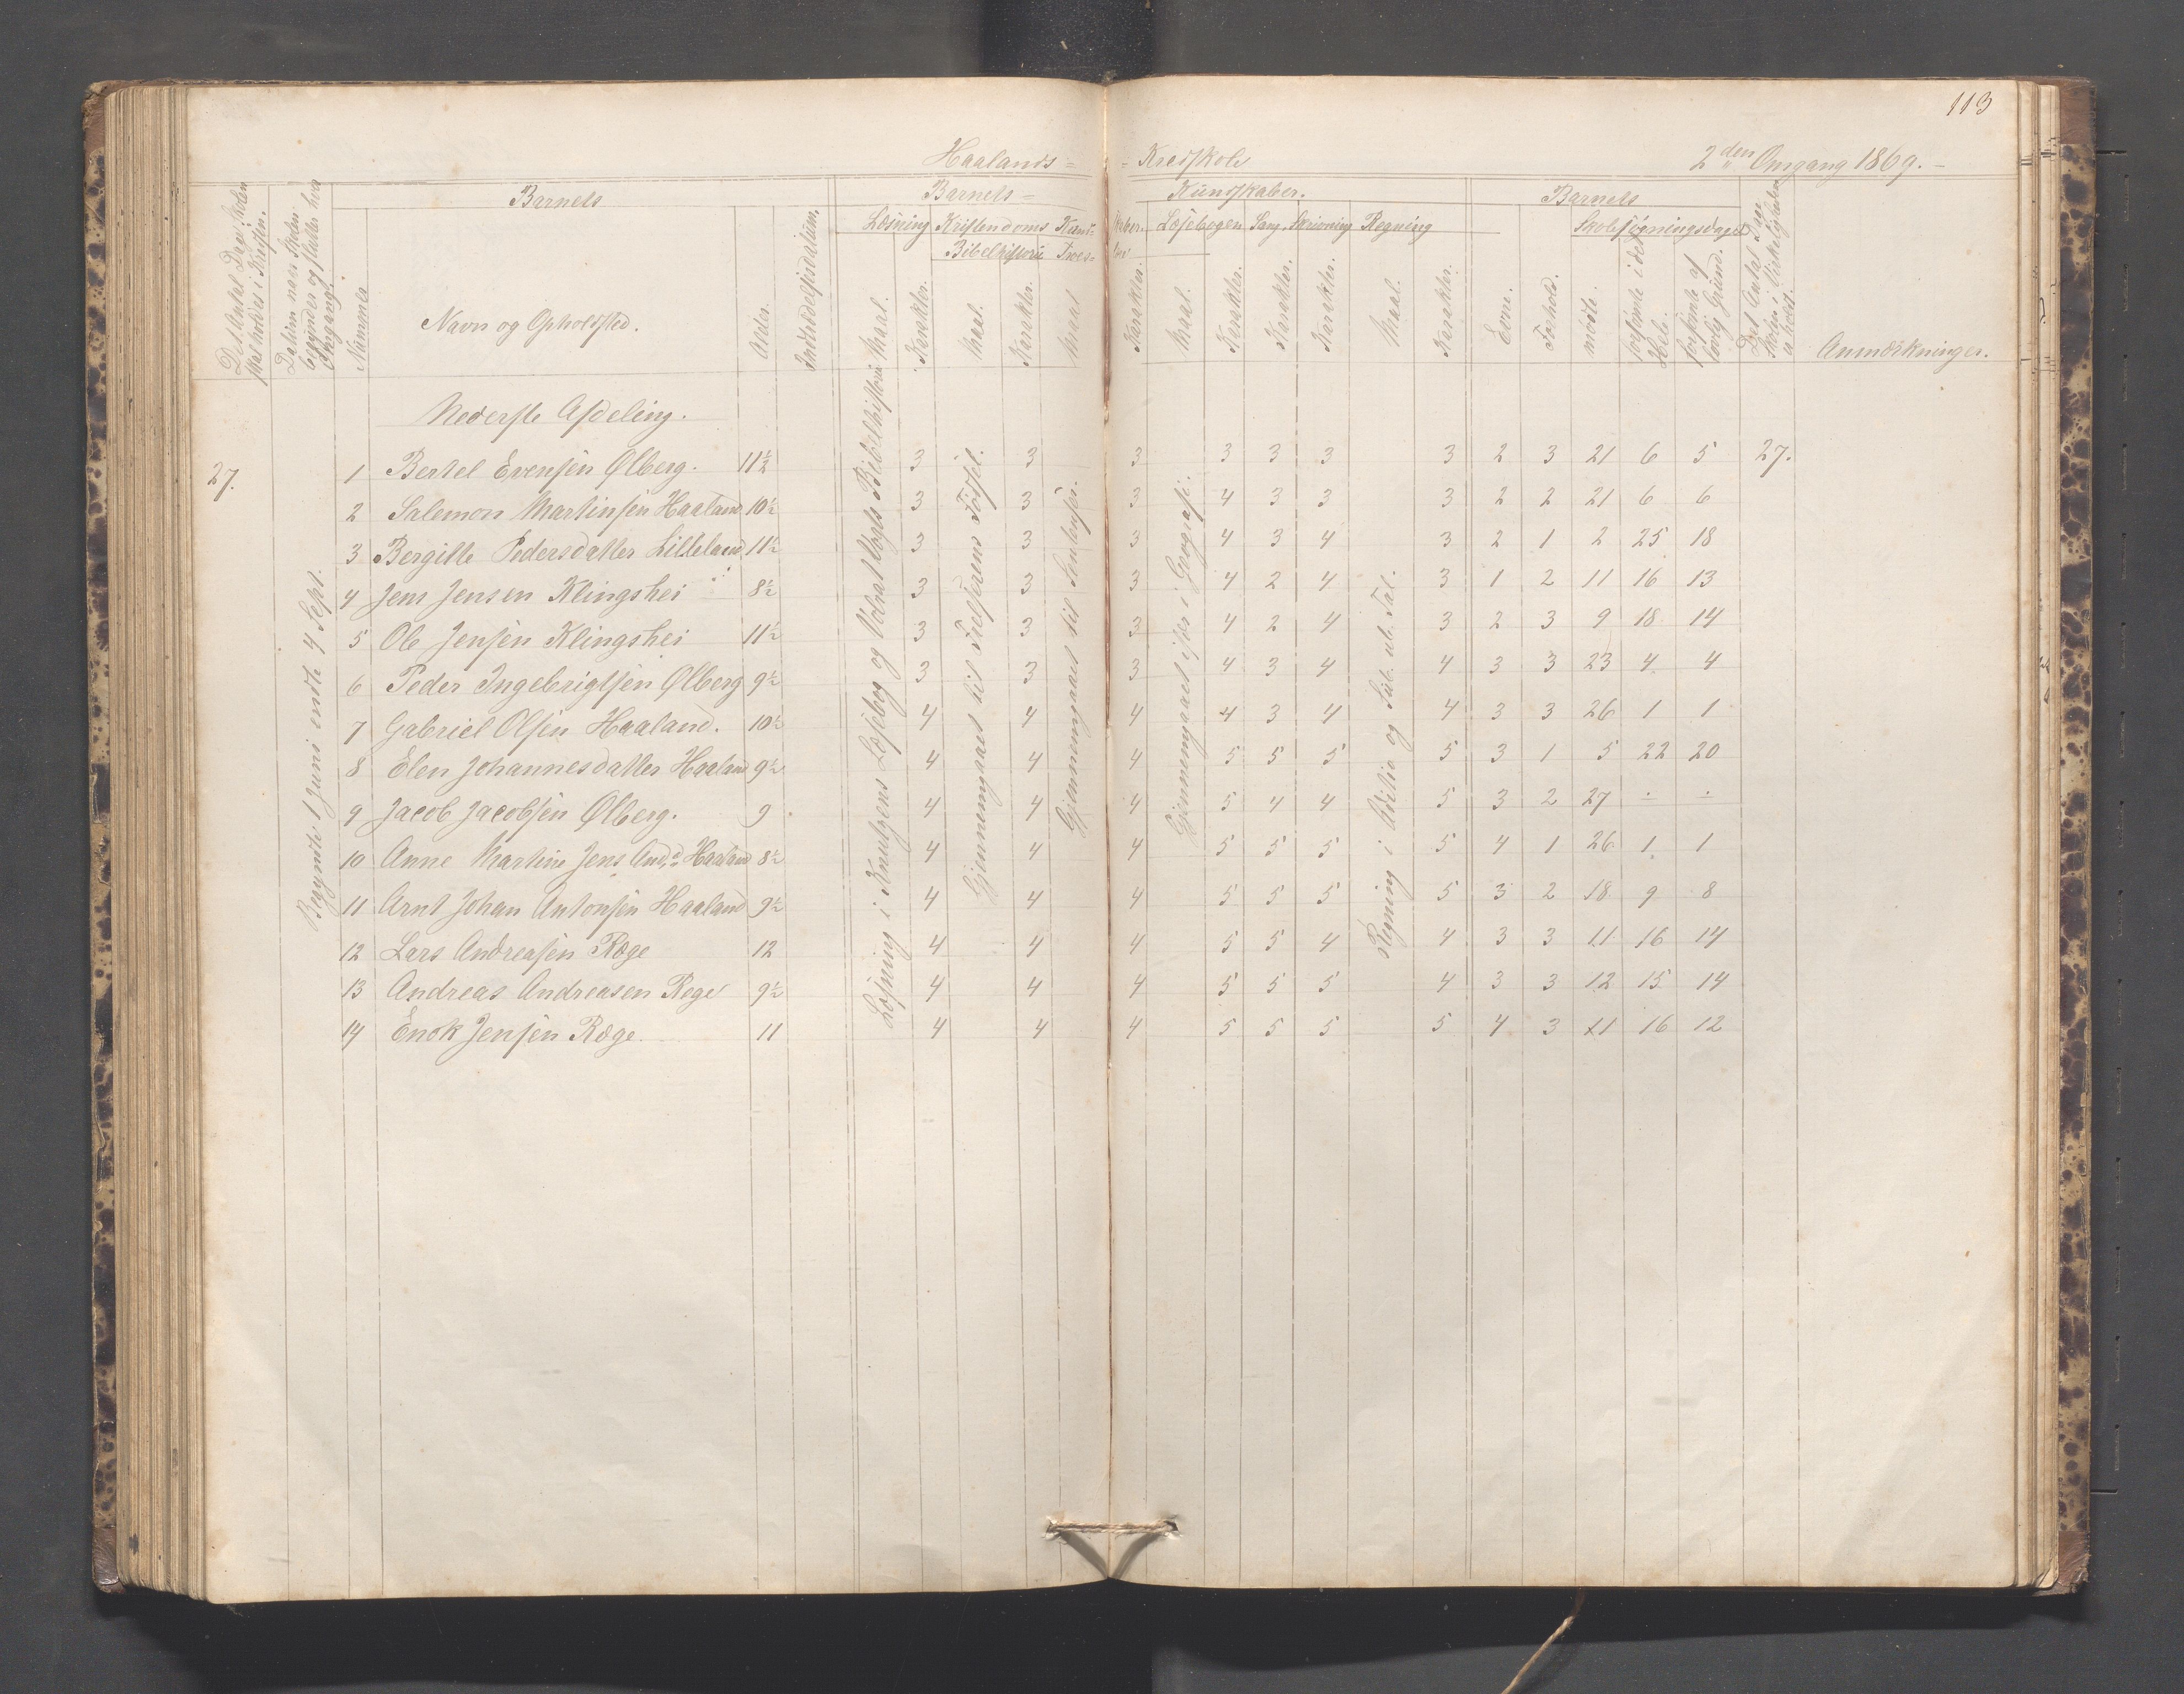 113
Haalands = - Kredsskole 2den Omgang 1869. -
Det Antal Dage Skolen skal holdes i Kredsen.
Datum naar Skolen begynder og slutter hver Omgang.
Barnets
Nummer
Navn og Opholdsted.
Alder.
Indtrædelsesdatum.
Barnets = Kundskaber.
Læsning Kristendoms Kund= skaber. Læsebogen Sang. Skrivning Regning
Bibelhistorie Troes= lære
Maal. Karakter. Maal. Karakter. Maal Karakter. Maal. Karakter. Karakter. Karakter. Maal. Karakter.
Barnets
Evne. Forhold.
Skolesøgningsdage
mødte. forsømte i det Hele. forsømte af lovlig Grund.
Det Antal Dage Skolen i Virkeligheden er holdt.
Anmærkninger.
Nederste Afdeling.
27. 1 Bertel Evensen Ølberg. 11½ 3 3 3 3 3 3 3 2 3 21 6 5 27.
2 Salemon Martinsen Haaland 10½ 3 3 3 4 3 3 3 2 2 21 6 6
3 Bergitte Pedersdatter Lilleland 11½ 3 3 3 4 3 4 3 2 1 2 25 18
4 Jens Jensen Klingshei 8½ 3 3 3 4 2 4 3 1 2 11 16 13
5 Ole Jensen Klingshei 11½ 3 3 3 4 2 4 3 2 3 9 18 14
6 Peder Ingebrigtsen Ølberg 9½ 3 3 3 4 3 4 4 3 3 23 4 4
7 Gabriel Olsen Haaland. 10½ 4 4 4 4 3 4 4 3 3 26 1 1
8 Elen Johannesdatter Haaland 9½ 4 4 4 5 5 5 5 3 1 5 22 20
9 Jacob Jacobsen Ølberg. 9 4 4 4 5 4 4 5 3 2 27 ÷ ÷
10 Anne Martine Jens And.d. Haaland 8½ 4 4 4 5 5 5 5 4 1 26 1 1
11 Arnt Johan Antonsen Haaland 9½ 4 4 4 5 5 5 5 3 2 18 9 8
12 Lars Andreasen Ræge 12 4 4 4 5 5 4 4 3 3 11 16 14
13 Andreas Andreasen Rege 9½ 4 4 4 5 5 5 4 3 3 12 15 14
14 Enok Jensen Ræge. 11 4 4 4 5 5 5 5 4 3 11 16 12
Begyndte 1 Juni endte 4 Sept.
Læsning i Knutzens Læsebog og Volrat Vogts Bibelhistorie
Gjennemgaaet til Frelserens Fødsel.
Gjennemgaaet til
Gjennemgaaet i Geografi.
Regning i Addition og Sub. ub. Tal.